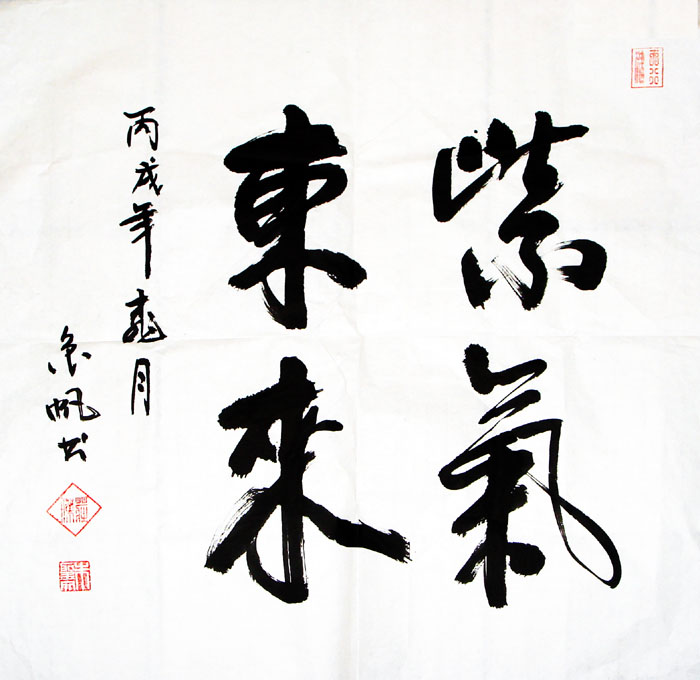 紫氣
東來
丙戌年月
帆书